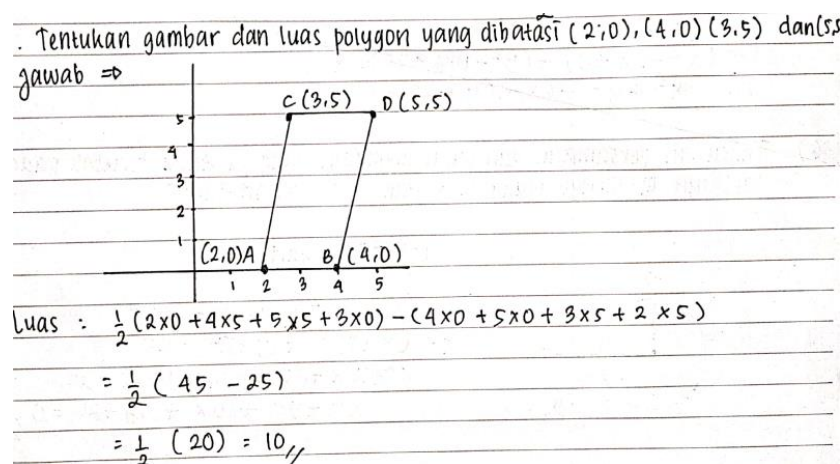 . Tentukan gambar dan luas polygon yang dibatasi (2,0), (4,0) (3,5) dan (5,5
Jawab ⇒
C (3,5) D (5,5)
5
4
3
2
1
(2,0) A B (4,0)
1 2 3 4 5
Luas : 1/2 (2×0 + 4×5 + 5×5 + 3×0) - (4×0 + 5×0 + 3×5 + 2×5)
= 1/2 (45 - 25)
= 1/2 (20) = 10 //